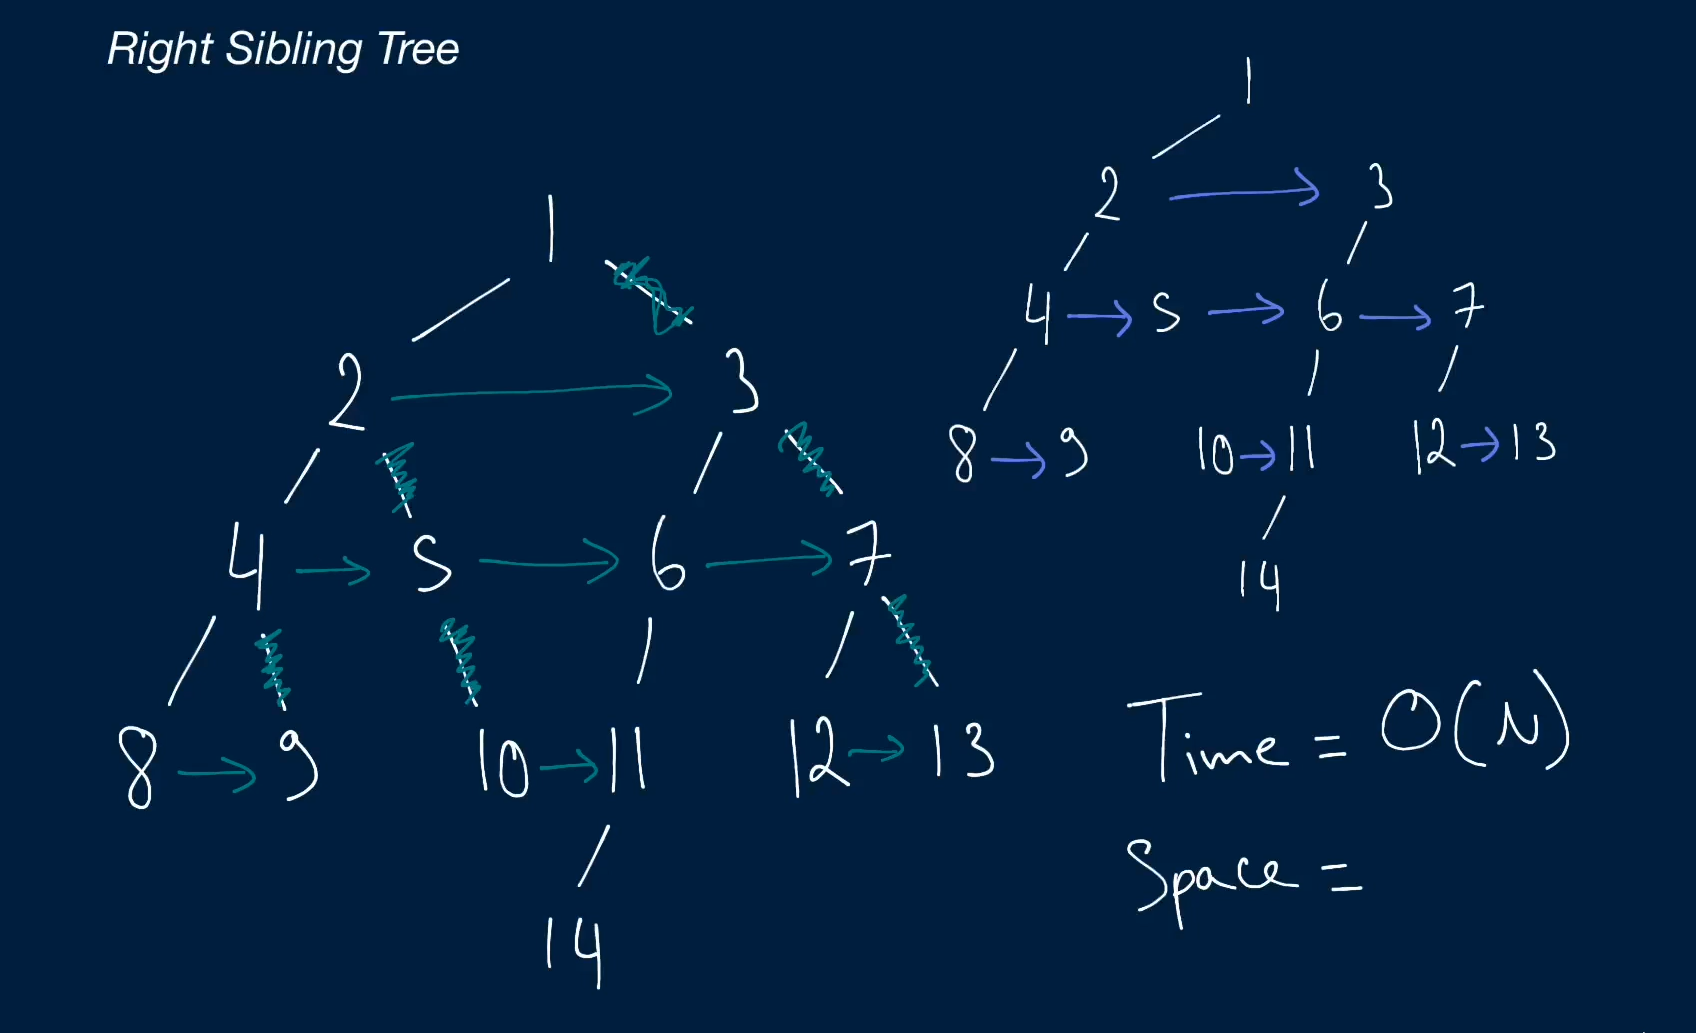 Right Sibling Tree
1
2 → 3
4 → 5 → 6 → 7
8 → 9 10 → 11 12 → 13
14
1
2 → 3
4 → 5 → 6 → 7
8 → 9 10 → 11 12 → 13
14
Time = O(N)
Space =